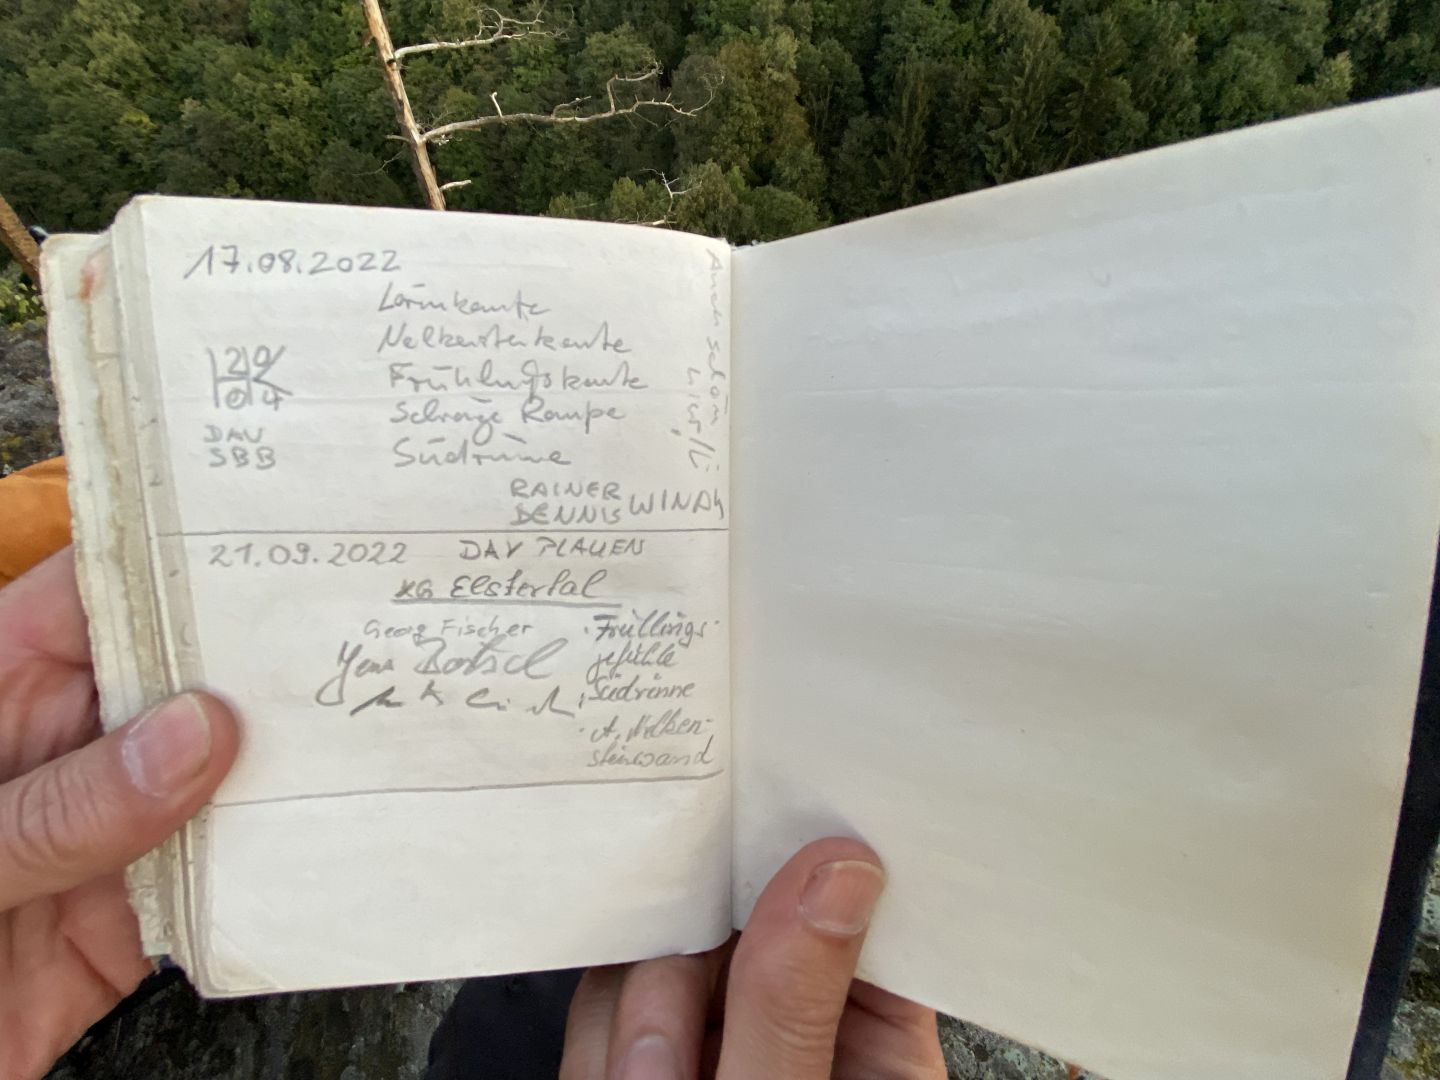 17.08.2022
Lärmkante
Nelkensteinkante
Frühlingskante
Schräge Rampe
Südrinne
20
HK
04
DAV
SBB
RAINER
DENNIS WINDH
Auch schön
hier!
21.09.2022 DAV PLAUEN
KG Elstertal
Georg Fischer
Jens
· Frühlings-
gefühle
· Südrinne
· A. Nelken-
steinwand